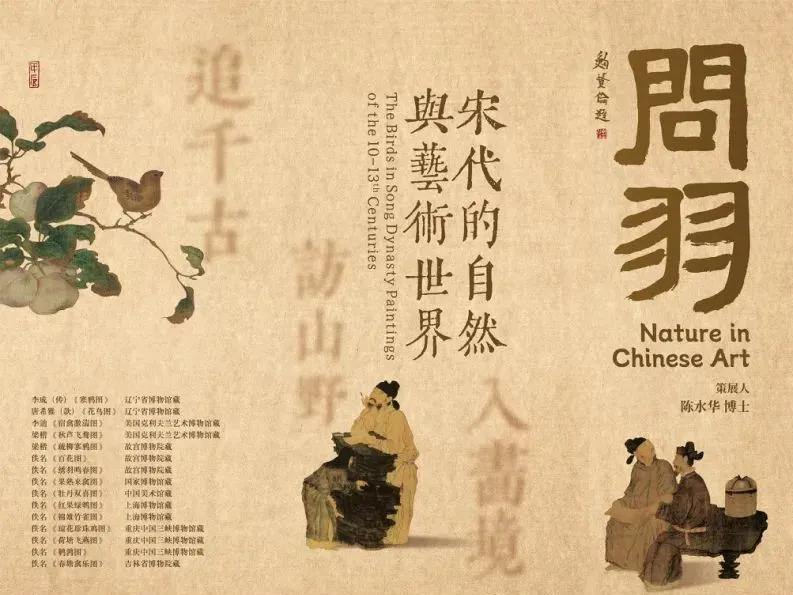 問羽
Nature in
Chinese Art
策展人
陈水华 博士
宋代的自然
與藝術世界
The Birds in Song Dynasty Paintings
of the 10–13th Centuries
追千古
訪山野
入畫境
李成（传）《寒鸦图》 辽宁省博物馆藏
唐希雅（款）《花鸟图》 辽宁省博物馆藏
李迪《宿禽激湍图》 美国克利夫兰艺术博物馆藏
梁楷《秋芦飞鹜图》 美国克利夫兰艺术博物馆藏
梁楷《疏柳寒鸦图》 故宫博物院藏
佚名《百花图》 故宫博物院藏
佚名《绣羽鸣春图》 故宫博物院藏
佚名《果熟来禽图》 国家博物馆藏
佚名《牡丹双喜图》 中国美术馆藏
佚名《红果绿鹎图》 上海博物馆藏
佚名《锦雉竹雀图》 上海博物馆藏
佚名《琼花珍珠鸡图》 重庆中国三峡博物馆藏
佚名《荷塘飞燕图》 重庆中国三峡博物馆藏
佚名《鹌鹑图》 重庆中国三峡博物馆藏
佚名《春塘禽乐图》 吉林省博物院藏